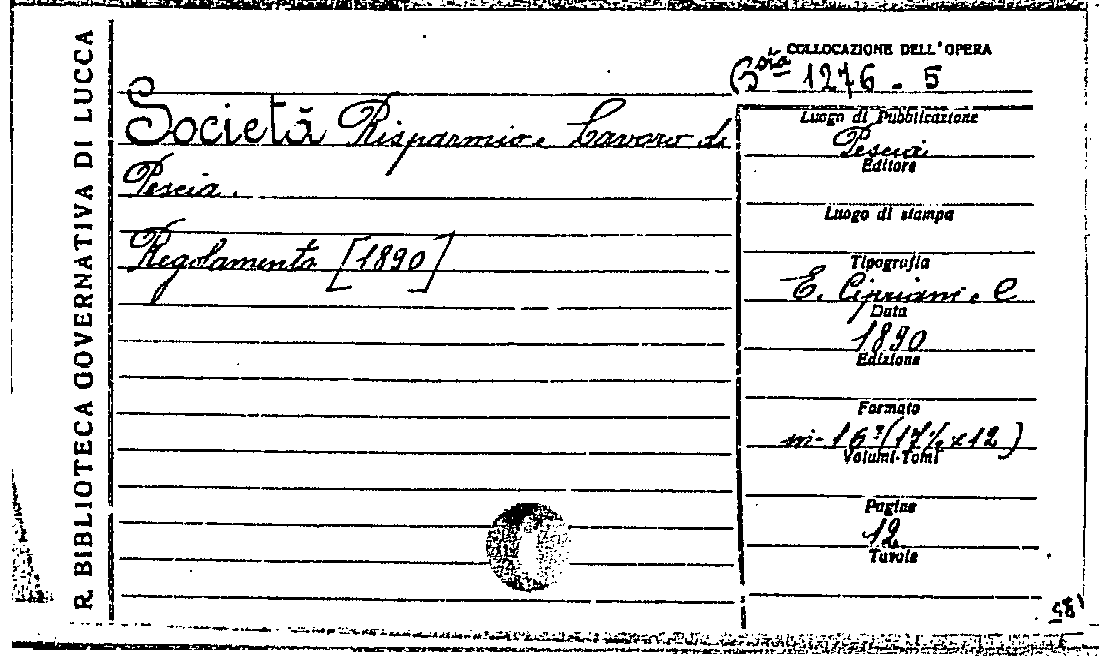 R. BIBLIOTECA GOVERNATIVA DI LUCCA
COLLOCAZIONE DELL'OPERA
Bsta 1276 - 5
Società Risparmio e Lavoro di
Pescia.
Regolamento [1890]
Luogo di Pubblicazione
Pescia
Editore
Luogo di stampa
Tipografia
E. Cipriani e C
Data
1890
Edizione
Formato
in-16° (17½ x 12)
Volumi-Tomi
Pagine
12
Tavole